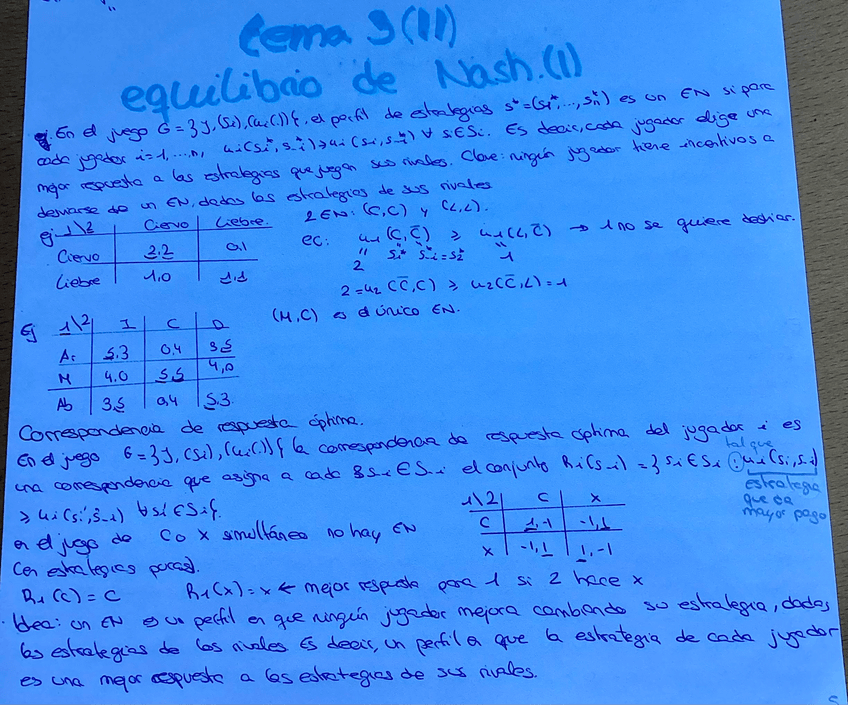 tema 3(II)
equilibrio de Nash.(I)
En el juego G = {J, (Si), (ui(·)}, el perfil de estrategias s* = (s1*, ..., sn*) es un EN si para
cada jugador i=1, ..., n, ui(si*, s-i*) ≥ ui(si, s-i*) ∀ si∈Si. Es decir, cada jugador elige una
mejor respuesta a las estrategias que juegan sus rivales. Clave: ningún jugador tiene incentivos a
desviarse de un EN, dadas las estrategias de sus rivales
ej 1\2 Ciervo Liebre.
Ciervo 2,2 0,1
Liebre 1,0 1,1
2 EN: (C,C) y (L,L).
ec: u1(C,C̄) ≥ u1(L,C̄) → 1 no se quiere desviar.
" si* s-i*=s2* "
2 1
2=u2(C̄,C) ≥ u2(C̄,L)=1
Ej 1\2 I C D
Ar 5,3 0,4 3,5
M 4,0 5,5 4,0
Ab 3,5 0,4 5,3
(M,C) es el único EN.
Correspondencia de respuesta óptima.
En el juego G={J, (Si), (ui(·)} la correspondencia de respuesta óptima del jugador i es
una correspondencia que asigna a cada s-i ∈ S-i el conjunto Ri(s-i) = {si ∈ Si : ui(si, s-i)
tal que
≥ ui(si', s-i) ∀ si' ∈ Si}.
estrategia
que da
mayor pago
en el juego de C o X simultáneo no hay EN
(en estrategias puras).
1\2 C X
C 1,-1 -1,1
X -1,1 1,-1
R1(C) = C R1(X) = X ← mejor respuesta para 1 si 2 hace X
· Idea: un EN es un perfil en que ningún jugador mejora cambiando su estrategia, dadas
las estrategias de los rivales Es decir, un perfil en que la estrategia de cada jugador
es una mejor respuesta a las estrategias de sus rivales.